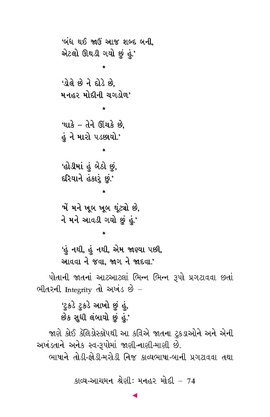 ‘બંધ થઈ જાઉં આજ શબ્દ બની,
એટલો ઊઘડી ગયો છું હું.’
*
‘ડોલે છે ને દોડે છે,
મનહર મોદીની ચગડોળ’
*
‘થાકે – તેને ઊંચકે છે,
હું ને મારો પડછાયો.’
*
‘હોડીમાં હું બેઠો છું,
દરિયાને હંકારું છું.’
*
‘મેં મને ખૂબ ખૂબ ઘૂંટ્યો છે,
ને મને આવડી ગયો છું હું.’
*
‘હું નથી, હું નથી, એમ જાણ્યા પછી,
આવવા ને જવા, જાગ ને જાદવા.’
પોતાની જાતનાં આટઆટલાં ભિન્ન ભિન્ન રૂપો પ્રગટાવવા છતાં
ભીતરની Integrity તો અખંડ છે –
‘ટુકડે ટુકડે આખો છું હું,
છેક સુધી લંબાયો છું હું.’
જાણે કોઈ કૅલિડોસ્કોપથી આ કવિએ જાતના ટુકડાઓને અને એની
અખંડતાને અનેક સ્વ-રૂપોમાં જાણી-નાણી-માણી છે.
ભાષાને તોડી-ફોડી-મરોડી નિજ કાવ્યભાષા-બાની પ્રગટાવવા તથા
કાવ્ય-આચમન શ્રેણી: મનહર મોદી – 74